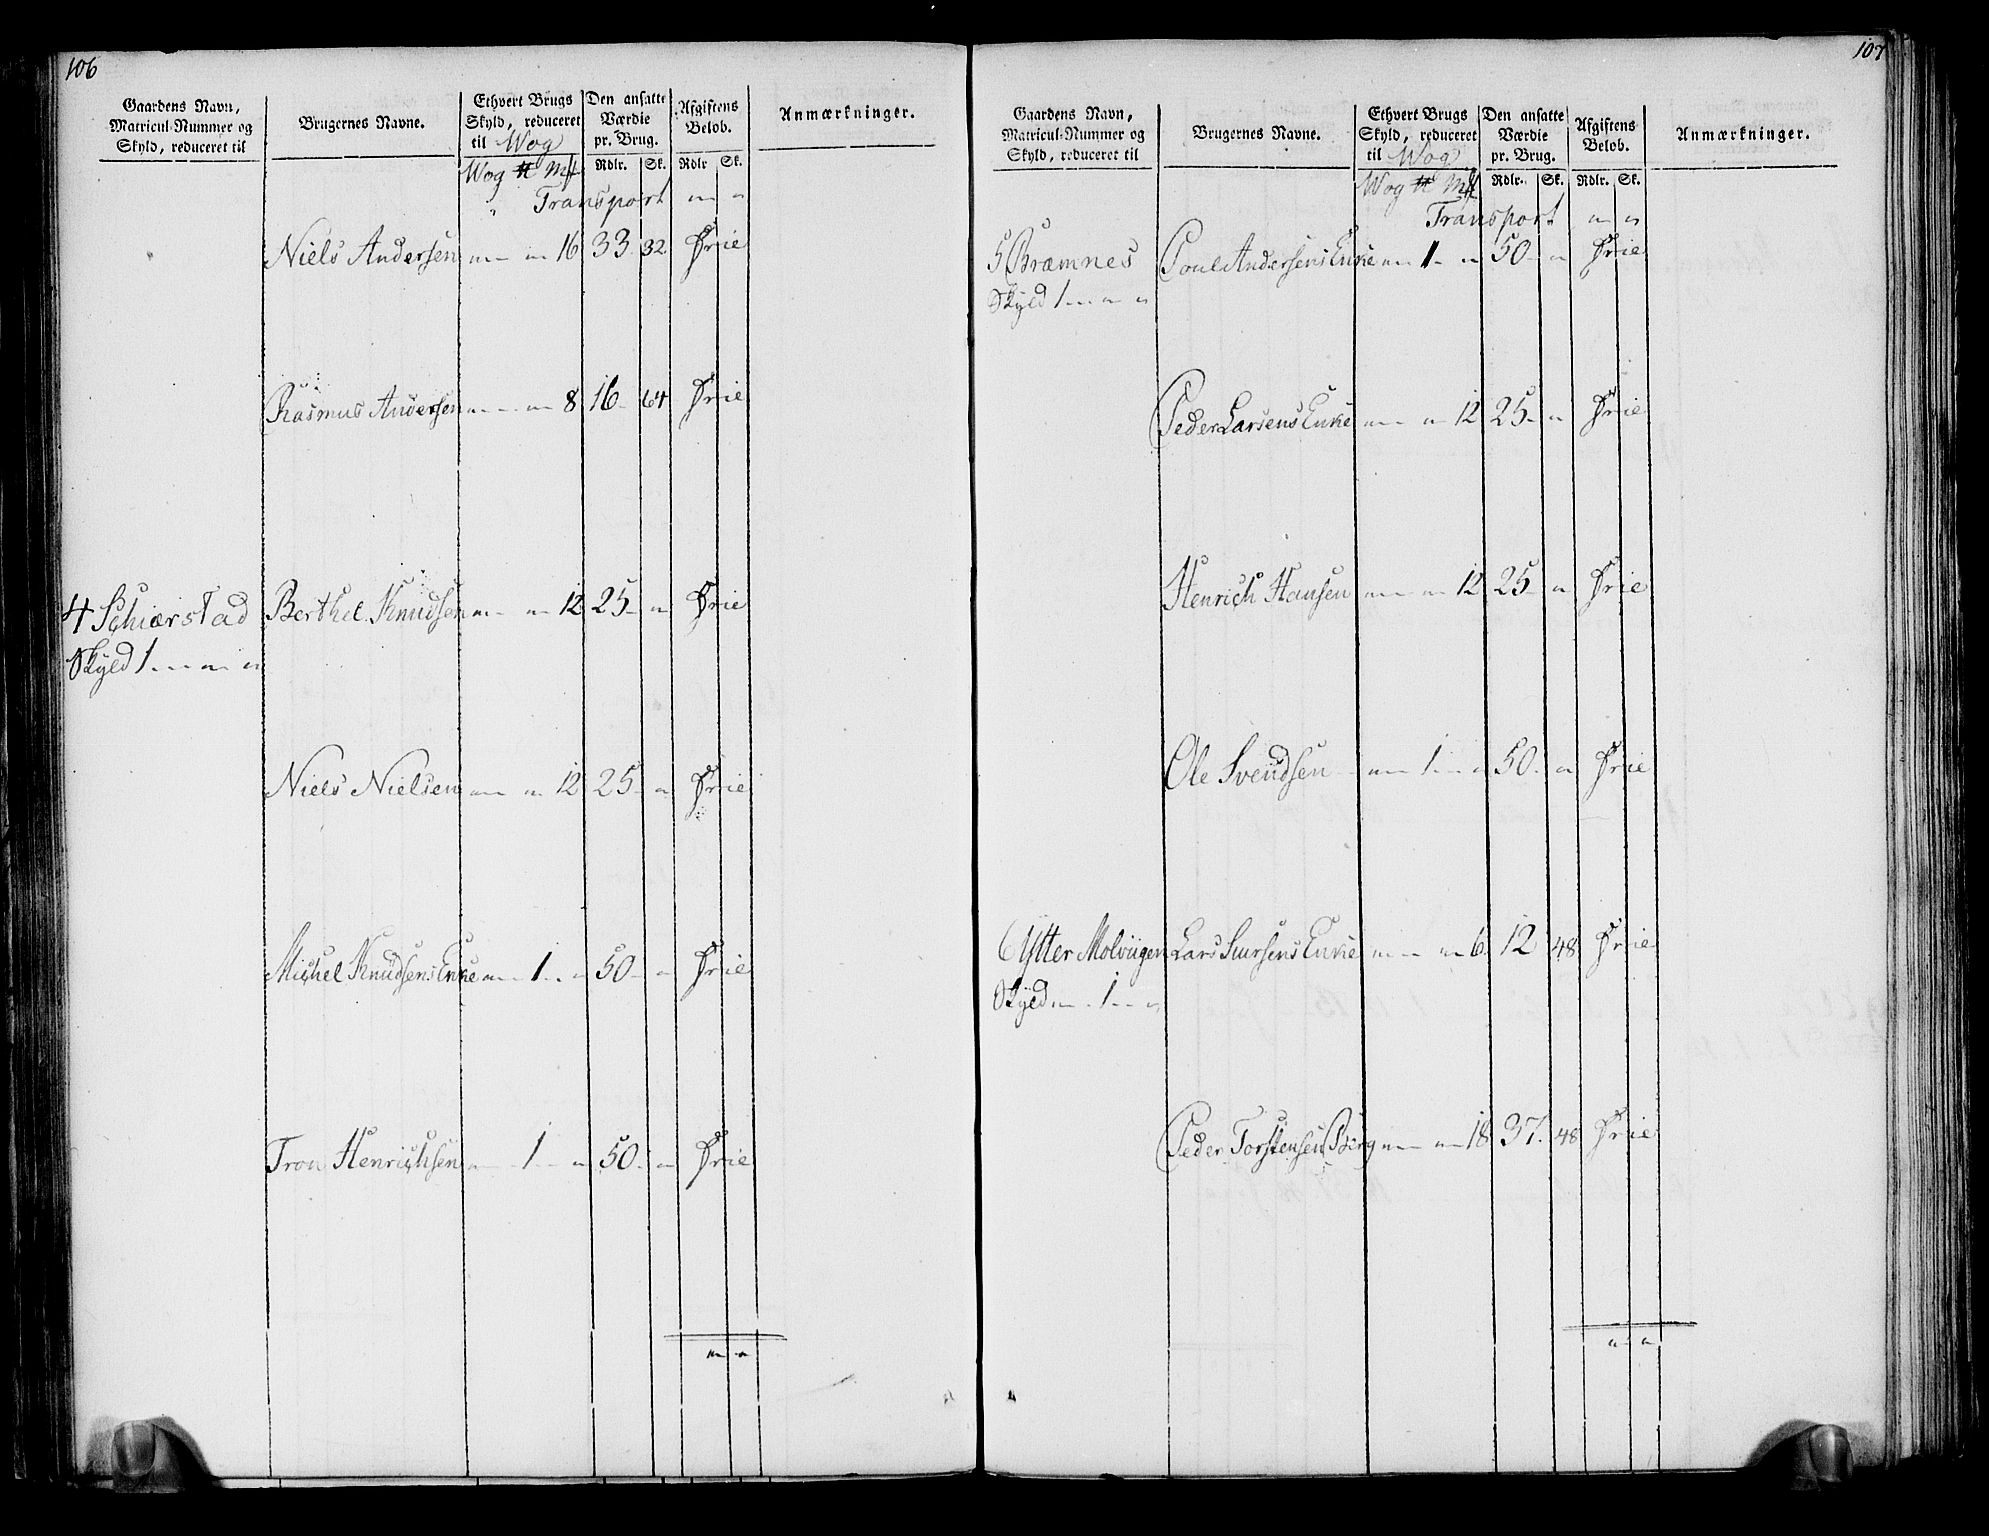 106
Gaardens Navn, Matricul-Nummer og Skyld, reduceret til
Brugernes Navne.
Ethvert Brugs Skyld, reduceret til Wog
Den ansatte Værdie pr. Brug.
Afgiftens Beløb.
Anmærkninger.
Wog ℔ Mk Rdlr. Sk. Rdlr Sk.
" Transport " "
Niels Andersen " " 16 33 32 Frie
Rasmus Andersen " " 8 16 64 Frie
4 Schiærstad Berthel Knudsen " " 12 25 " Frie
Skyld 1 " "
Niels Nielsen " " 12 25 " Frie
Michel Knudsens Enke " 1 " 50 " Frie
Tron Henrichsen " 1 " 50 " Frie
" "
107
Gaardens Navn, Matricul-Nummer og Skyld, reduceret til
Brugernes Navne.
Ethvert Brugs Skyld, reduceret til Wog
Den ansatte Værdie pr. Brug.
Afgiftens Beløb.
Anmærkninger.
Wog ℔ Mk Rdlr. Sk. Rdlr. Sk.
Transport " "
5 Bræmnes Poul Andersens Enke " 1 " 50 " Frie
Skyld 1 " "
Peder Larsens Enke " " 12 25 " Frie
Henrich Hansen " " 12 25 " Frie
Ole Svendsen " 1 " 50 " Frie
6 Ytter Molviigen Lars Enke " " 6 12 48 Frie
Skyld " 1 "
Peder Torstensen Berg " " 18 37 48 Frie
" "